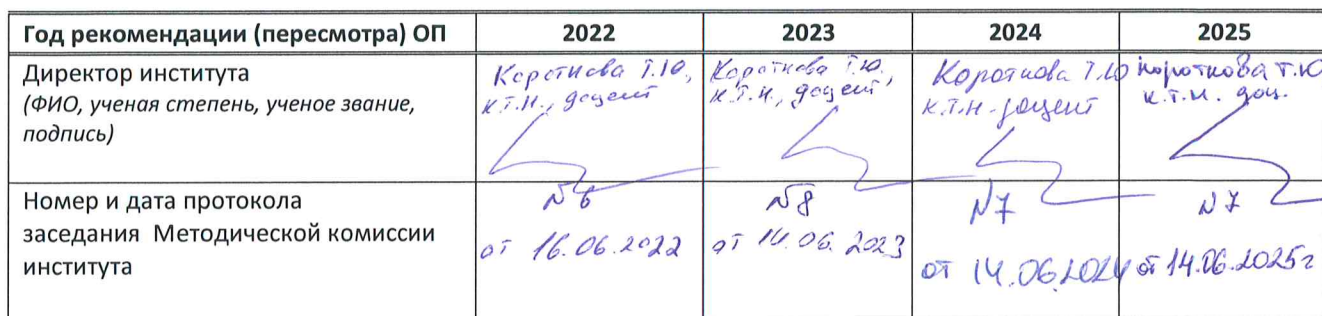 Год рекомендации (пересмотра) ОП 2022 2023 2024 2025
Директор института
(ФИО, ученая степень, ученое звание,
подпись)
Короткова Т.Ю.,
к.т.н., доцент
Короткова Т.Ю.
к.т.н., доцент
Короткова Т.Ю
к.т.н. доцент
Короткова Т.Ю
к.т.н. доц.
Номер и дата протокола
заседания Методической комиссии
института
№6
от 16.06.2022
№8
от 14.06.2023
№7
от 14.06.2024
№7
от 14.06.2025г